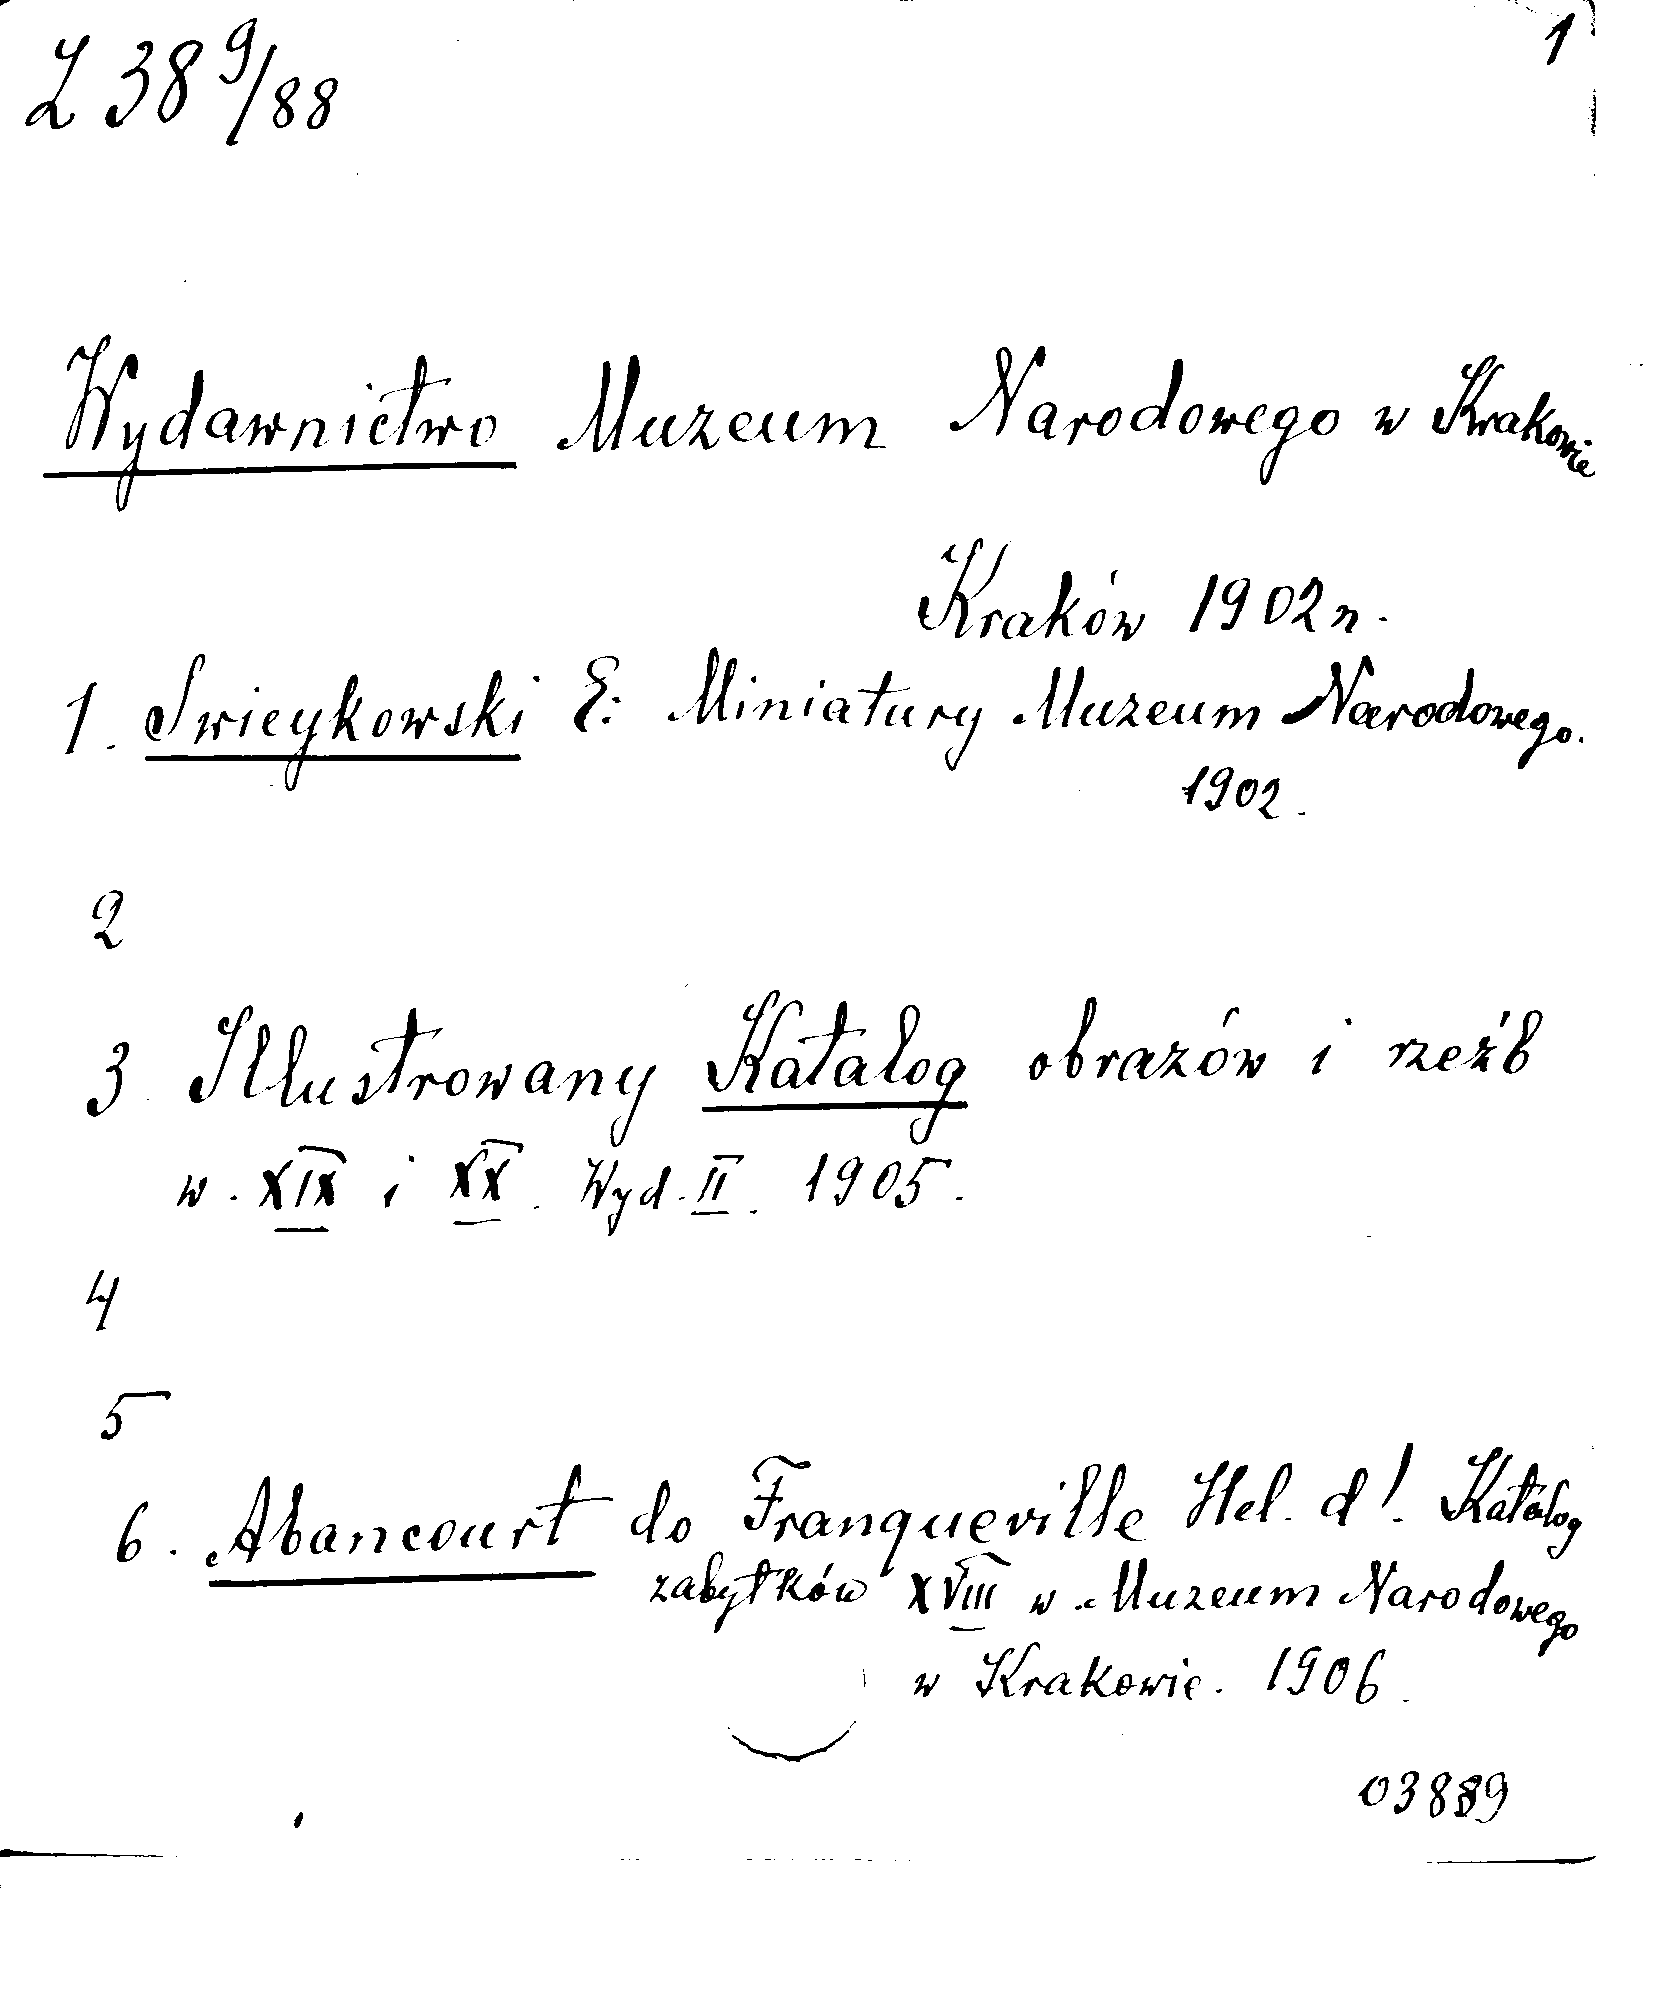 Z 38 9/88
1
Wydawnictwo Muzeum Narodowego w Krakowie
Kraków 1902 n.
1. Swieykowski E: Miniatury Muzeum Narodowego.
1902.
2
3 Illustrowany Katalog obrazów i rzeźb
w. XIX i XX. Wyd. II. 1905.
4
5
6. Abancourt do Franqueville Hel. d'. Katalog
zabytków XVIII w. Muzeum Narodowego
w Krakowie. 1906.
03889